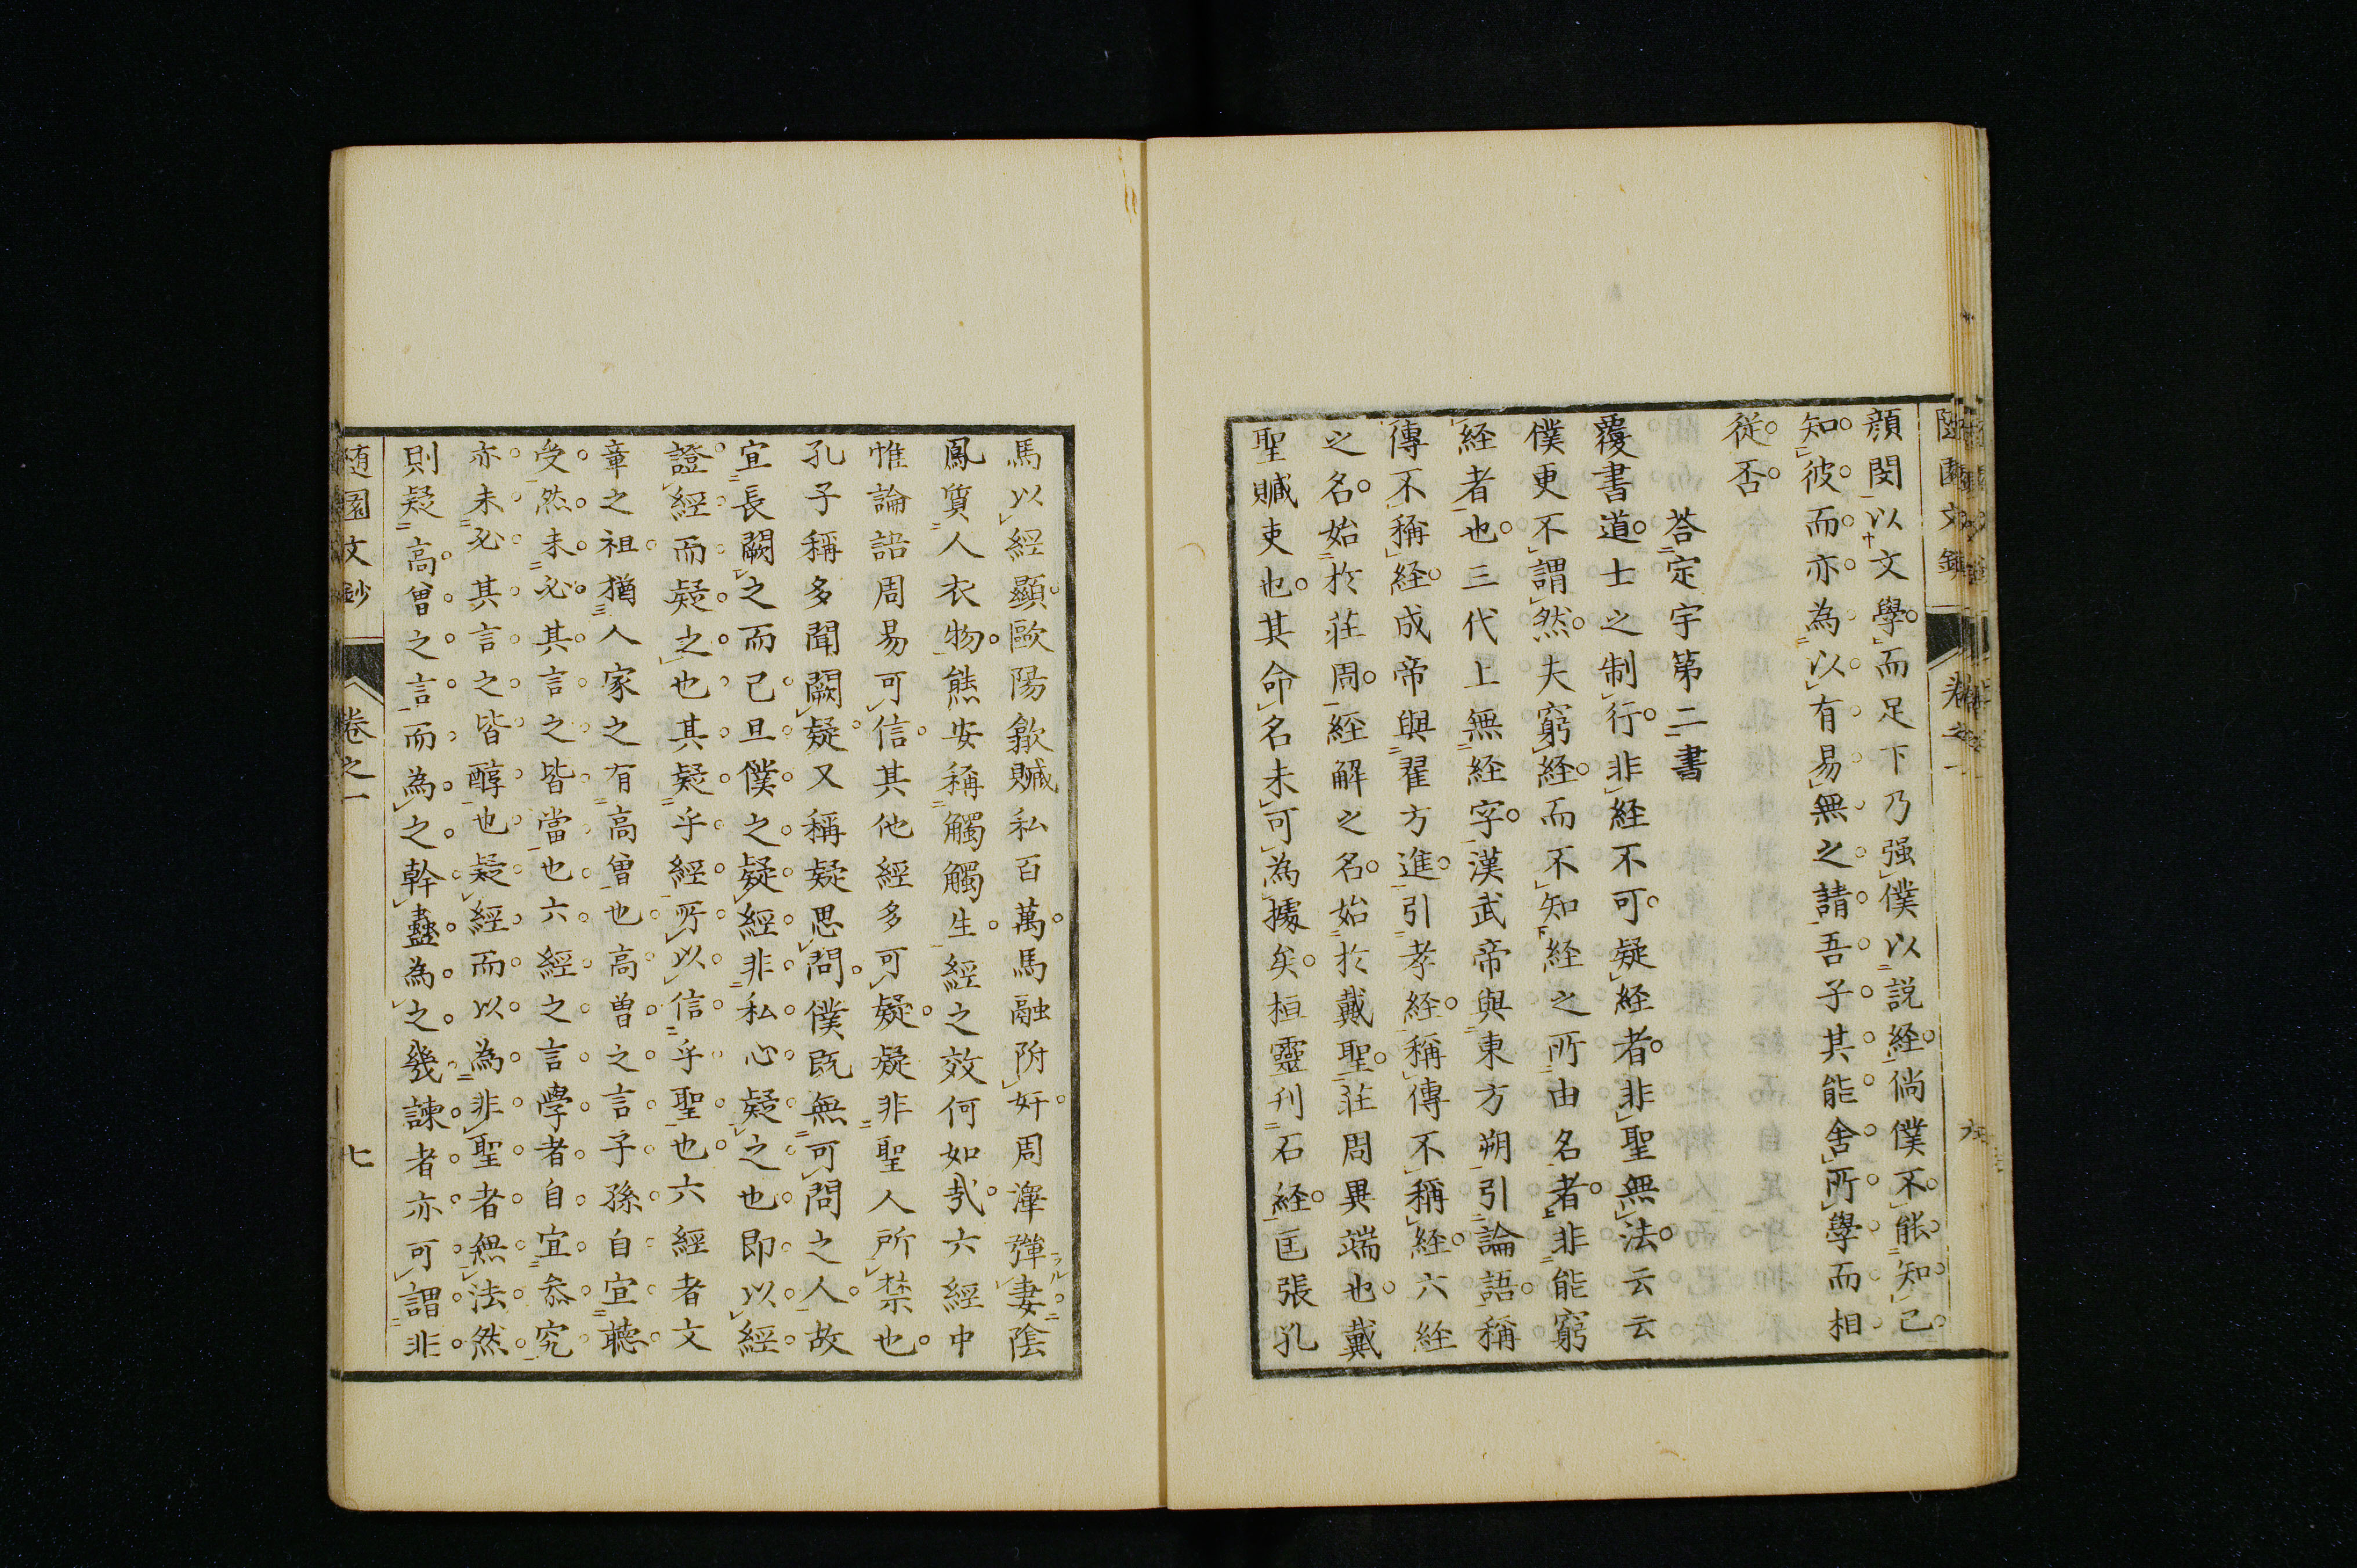 隨園文鈔 卷之一 六
顔閔以文學而足下乃强僕以説経倘僕不能知己
知彼而亦為以有易無之請吾子其能舎所學而相
従否
荅定宇第二書
覆書道士之制行非経不可疑経者非聖無法云云
僕更不謂然夫窮経而不知経之所由名者非能窮
経者也三代上無経字漢武帝與東方朔引論語稱
傳不稱経成帝與翟方進引孝経稱傳不稱経六経
之名始於莊周経解之名始於戴聖莊周異端也戴
聖贓吏也其命名未可為據矣桓靈刊石経匡張孔
馬以經顯歐陽歙贓私百萬馬融附奸周澤彈妻陰
鳳質人衣物熊安稱觸觸生經之效何如㢤六經中
惟論語周易可信其他經多可疑疑非聖人所禁也
孔子稱多聞闕疑又稱疑思問僕既無可問之人故
宜長闕之而己旦僕之疑經非私心疑之也即以經
證經而疑之也其疑乎經所以信乎聖也六經者文
章之祖猶人家之有高曽也高曽之言子孫自宜聴
受然未必其言之皆當也六經之言學者自宜叅究
亦未必其言之皆醇也疑經而以為非聖者無法然
則疑高曽之言而為之幹蠱為之幾諫者亦可謂非
随園文鈔 卷之一 七